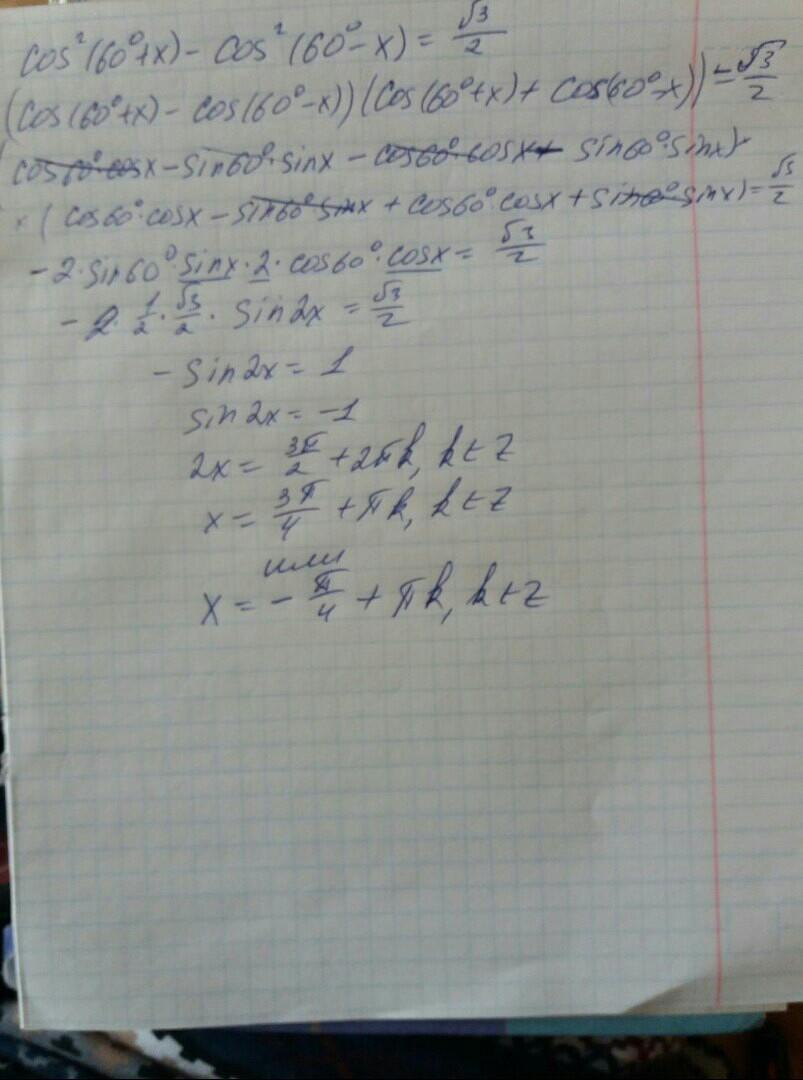 cos²(60°+x) - cos²(60°-x) = √3/2
(cos(60°+x) - cos(60°-x))(cos(60°+x) + cos(60°-x)) = √3/2
(cos60°·cosx - sin60°·sinx - cos60°·cosx - sin60°·sinx)·
×(cos60°·cosx - sin60°·sinx + cos60°·cosx + sin60°·sinx) = √3/2
-2·sin60°·sinx·2·cos60°·cosx = √3/2
-2·1/2·√3/2·sin2x = √3/2
-sin2x = 1
sin2x = -1
2x = 3π/2 + 2πk, k∈Z
x = 3π/4 + πk, k∈Z
или
x = -π/4 + πk, k∈Z